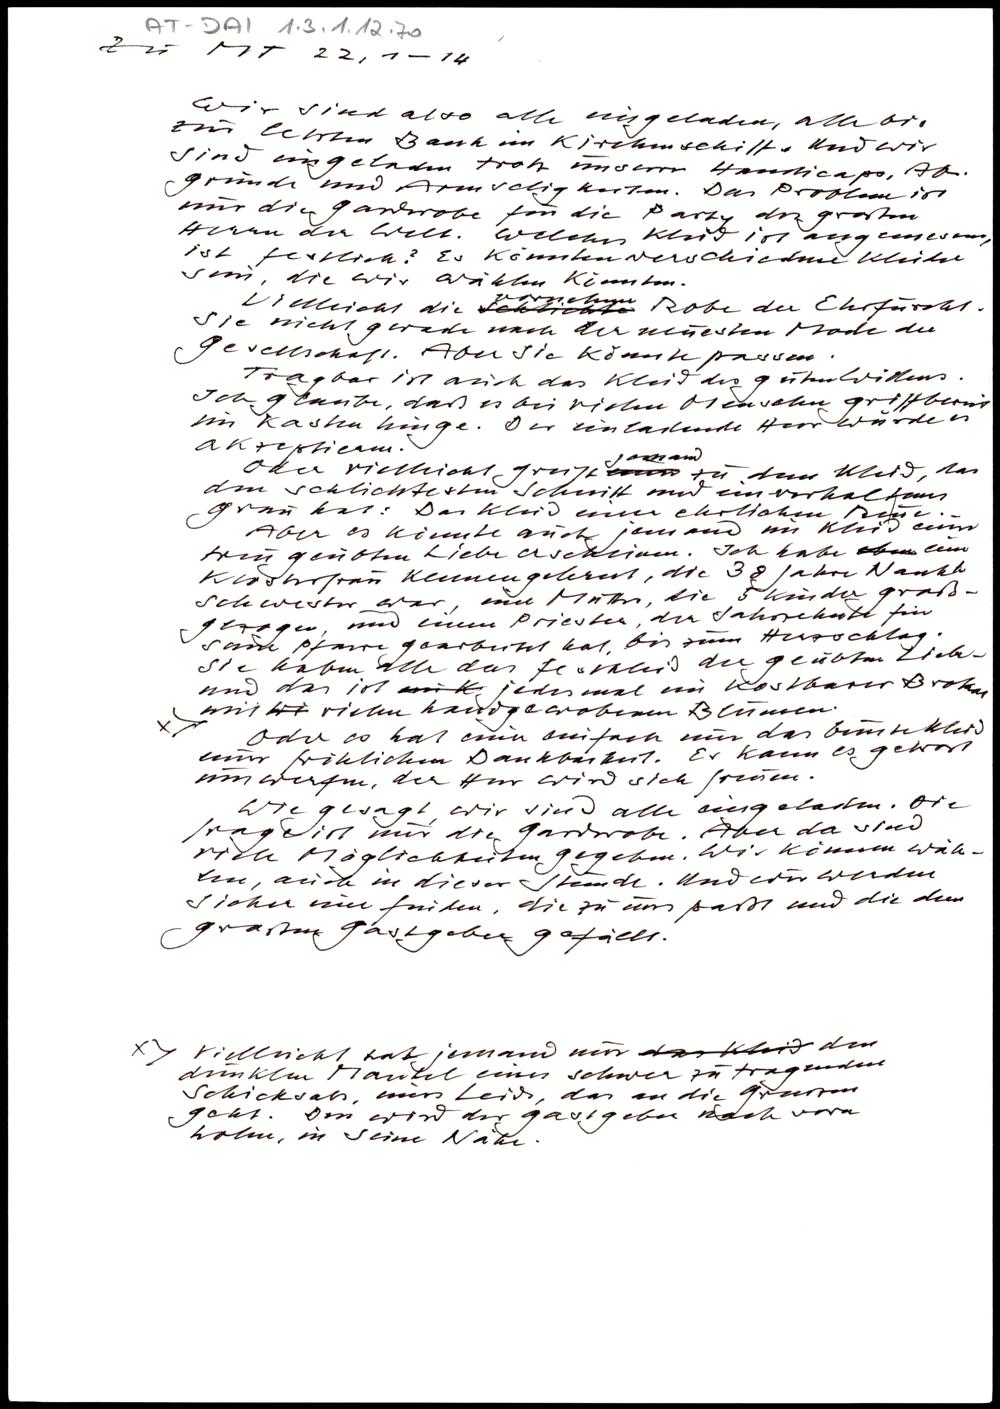 AT-DAI 1.3.1.12.70
Zu MT 22, 1-14
Wir sind also alle eingeladen, alle bis
zur letzten Bank im Kirchenschiff. Und wir
sind eingeladen trotz unserer Handicaps, Ab-
gründe und Armseligkeiten. Das Problem ist
nur die Garderobe für die Party des großen
Herrn der Welt. Welches Kleid ist angemessen,
ist festlich? Es könnten verschiedene Kleider
sein, die wir wählen könnten.
Vielleicht die schlichte vornehme Robe der Ehrfurcht.
Sie nicht gerade nach der neuesten Mode der
Gesellschaft. Aber sie könnte passen.
Tragbar ist auch das Kleid des guten Willens.
Ich glaube, daß es bei vielen Menschen griffbereit
im Kasten hinge. Der einladende Herr würde es
akzeptieren.
Oder vielleicht greift einer jemand zu dem Kleid, das
den schlichtesten Schnitt und ein verhaltenes
Grau hat: Das Kleid einer ehrlichen Reue.
Aber es könnte auch jemand im Kleid einer
treu geübten Liebe erscheinen. Ich habe eben eine
Klosterfrau kennengelernt, die 38 Jahre Nacht
schwester war, eine Mutter, die 5 Kinder groß-
gezogen, und einen Priester, der Jahrzehnte für
seine Pfarre gearbeitet hat, bis zum Herzschlag.
Sie haben alle das Festkleid der geübten Liebe
und das ist jedesmal ein kostbarer Brokat
mit vielen handgewobenen Blumen.
x) Oder es hat einer einfach nur das bunte Kleid
einer fröhlichen Dankbarkeit. Er kann es getrost
umwerfen, der Herr wird sich freuen.
Wie gesagt, wir sind alle eingeladen. Die
Frage ist nur die Garderobe. Aber da sind
viele Möglichkeiten gegeben. Wir können wäh-
len, auch in dieser Stunde. Und wir werden
sicher eine finden, die zu uns paßt und die dem
großen Gastgeber gefällt.
x) Vielleicht hat jemand nur das Kleid den
dunklen Mantel eines schwer zu tragenden
Schicksals, eines Leids, das an die Grenzen
geht. Den wird der Gastgeber nach vorn
holen, in seine Nähe.